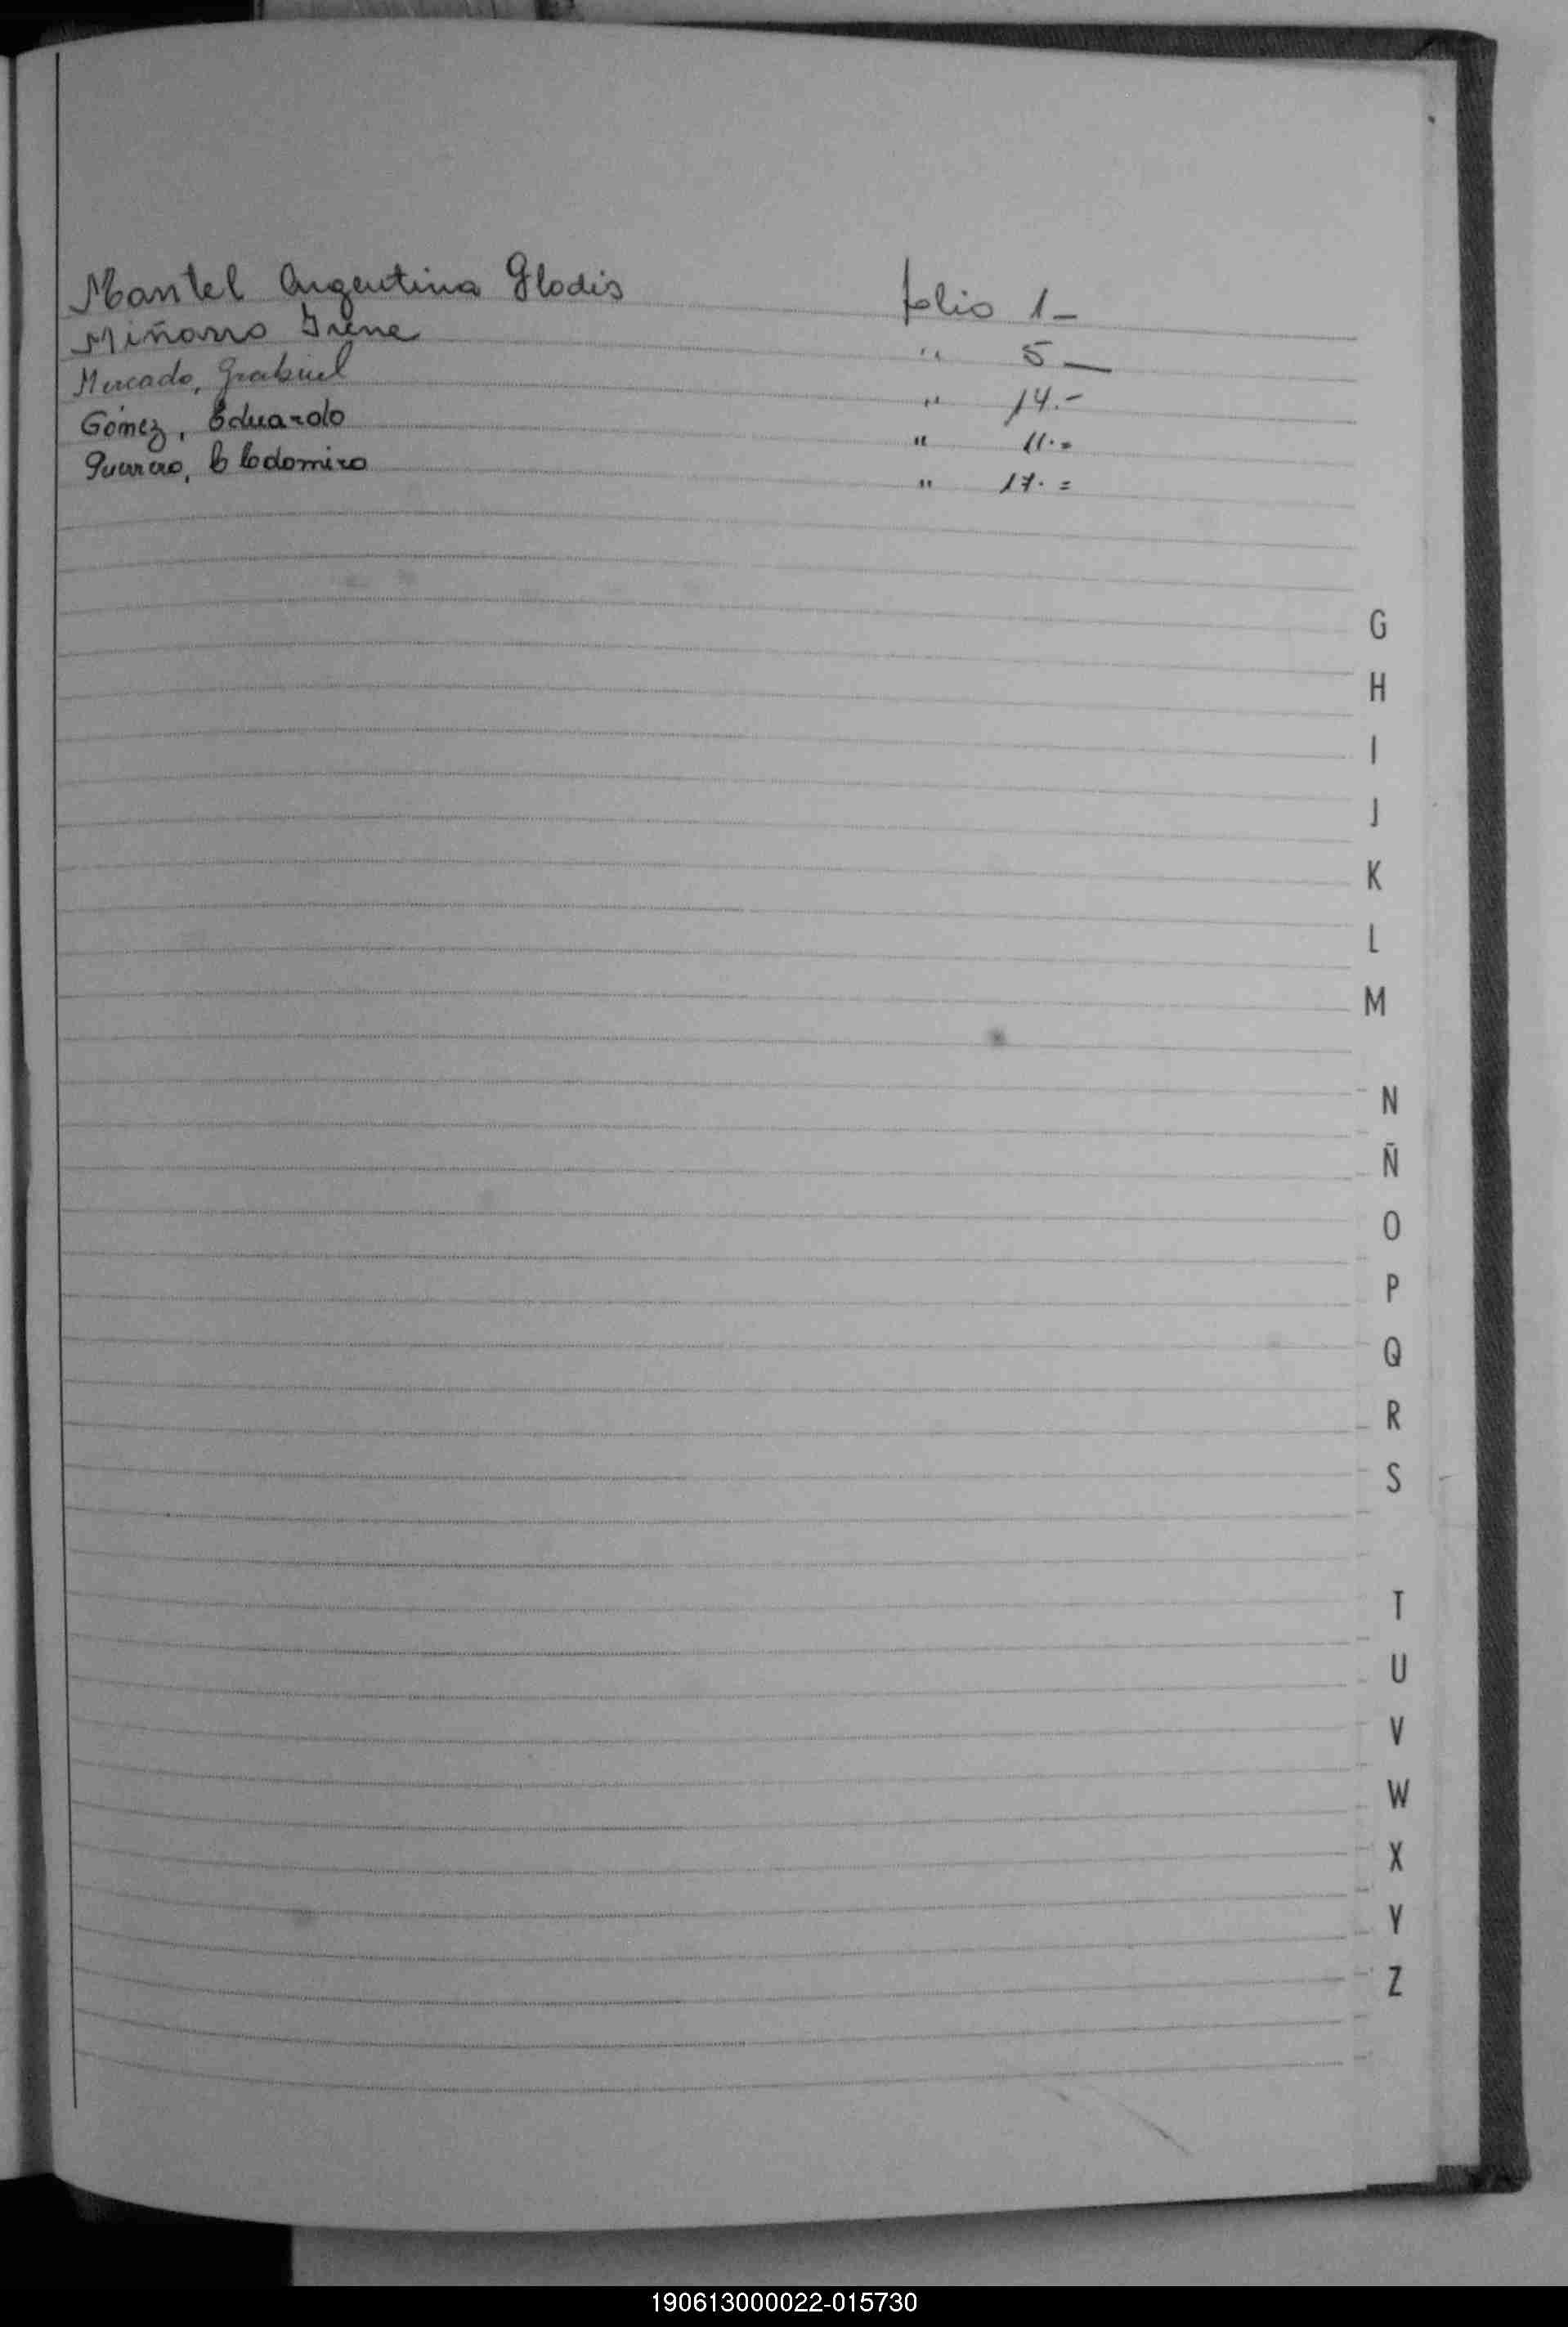 Mantel Argentina Gladis folio 1-
Miñarro Irene " 5-
Mercado, Grabiel " 14.-
Gómez, Eduardo " 11.=
Guerrero, Clodomiro " 17.=
G
H
I
J
K
L
M
N
Ñ
O
P
Q
R
S
T
U
V
W
X
Y
Z
190613000022-015730